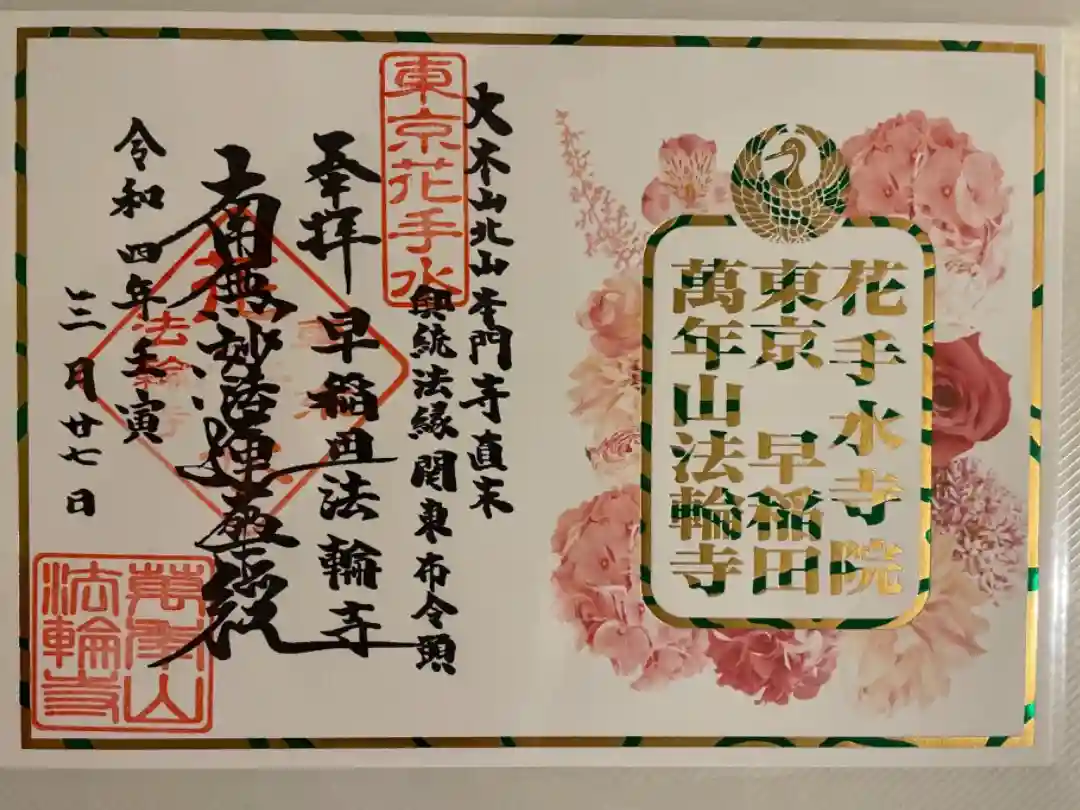 花手水寺院
東京 早稲田
萬年山法輪寺
大本山北山本門寺直末
興統法縁関東布令頭
東京花手水
奉拝 早稲田法輪寺
南無妙法蓮華経
法輪寺
令和四年壬寅
三月廿七日
萬年山
法輪寺